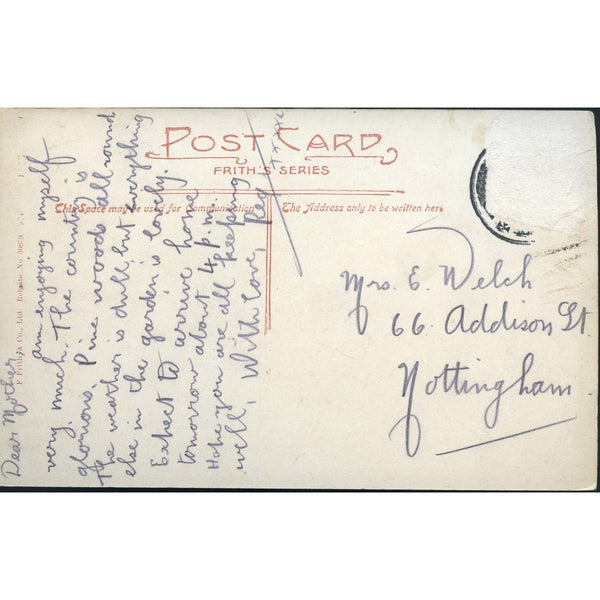 POST CARD
FRITH'S SERIES
This Space may be used for Communication
The Address only to be written here
F. Frith & Co., Ltd. Reigate. No.
Dear Mother
am enjoying myself
very much. The country is
glorious. Pine woods all round
the weather is dull but everything
else in the garden is lovely.
Expect to arrive home
tomorrow about 4 p.m.
Hope you are all keeping
well, With love, Reg
Mrs. E. Welch
66 Addison St
Nottingham